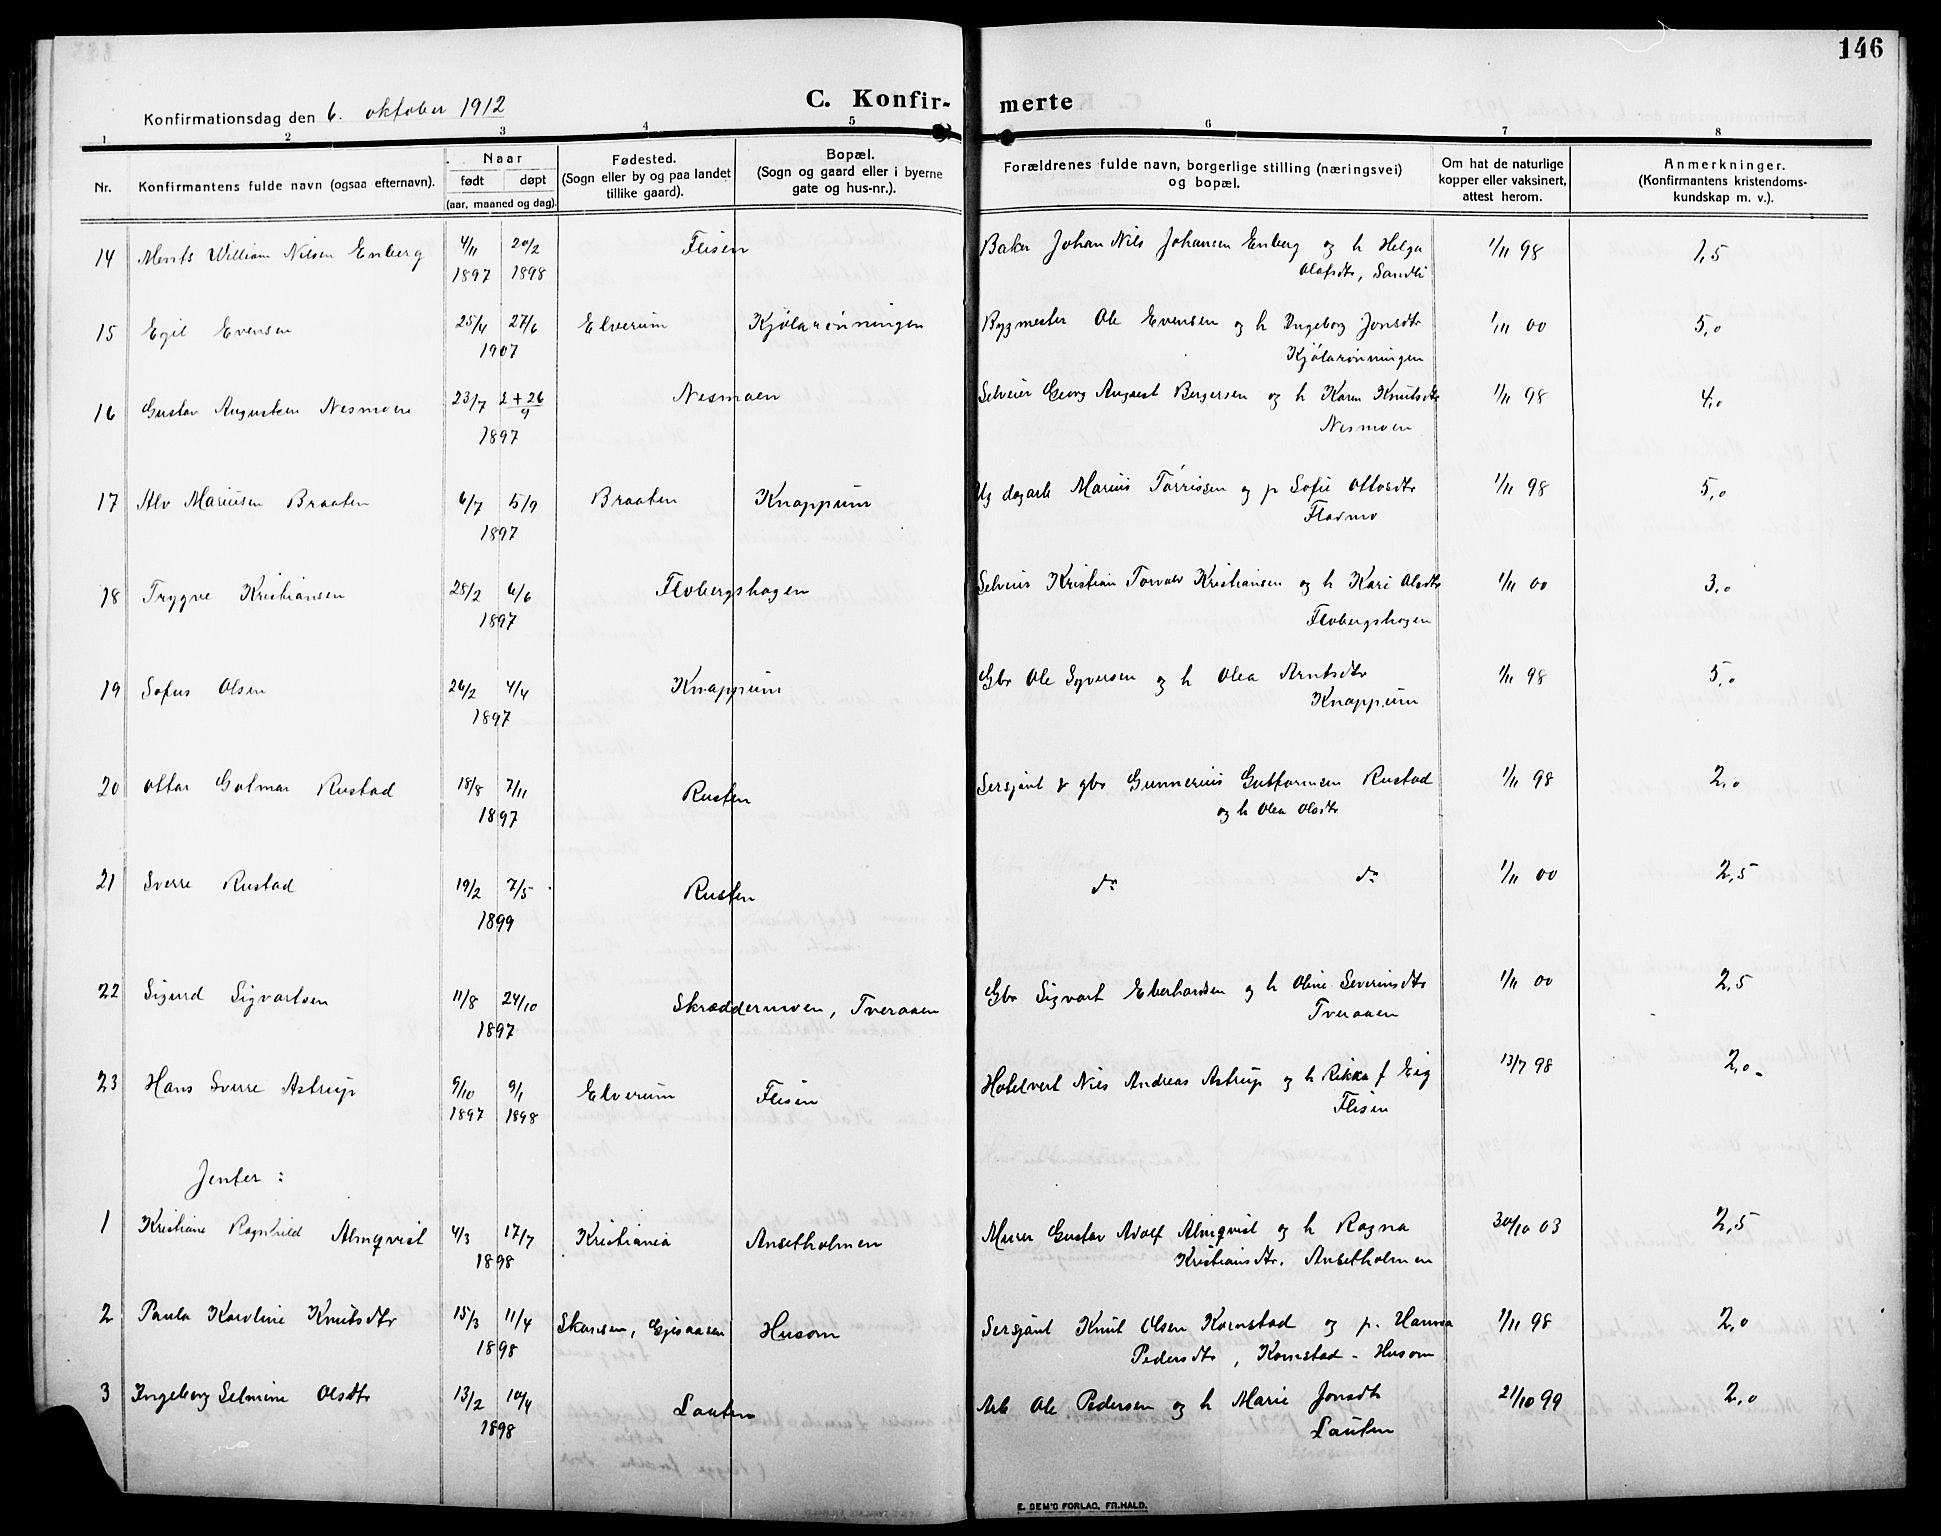 146
C. Konfir- merte
Konfirmationsdag den 6. oktober 1912
1 2 3 4 5 6 7 8
Nr.
Konfirmantens fulde navn (ogsaa efternavn).
Naar
født døpt
(aar, maaned og dag).
Fødested.
(Sogn eller by og paa landet
tillike gaard).
Bopæl.
(Sogn og gaard eller i byerne
gate og hus-nr.).
Forældrenes fulde navn, borgerlige stilling (næringsvei)
og bopæl.
Om hat de naturlige
kopper eller vaksinert,
attest herom.
Anmerkninger.
(Konfirmantens kristendoms-
kundskap m. v.).
14 William Nilsen Enberg 4/11 20/2 Flisen Baker Johan Nils Johansen Enberg og h Helga 1/11 98 1,5
1897 1898 Olofsdtr, Sandli
15 Egil Evensen 25/4 27/6 Elverum Kjølarønningen Bygmester Ole Evensen og h Ingeborg Jonsdtr 1/11 00 5,0
1907 Kjølarønningen
16 Gustav Augustsen Nesmoen 23/7 2+26/9 Nesmoen Selveier Georg August Bergersen og h Karen Knutsdtr 1/11 98 4,0
1897 Nesmoen
17 Alv Mariusen Braaten 6/7 5/9 Braaten Knappum Ug dagarb Marius Tørrissen og p Sofie Ottosdtr 1/11 98 5,0
1897 Flarmo
18 Trygve Kristiansen 28/2 6/6 Flobergshagen Selveier Kristian Torvald Kristiansen og h Kari Olsdtr 1/11 00 3,0
1897 Flobergshagen
19 Sofus Olsen 26/2 4/4 Knappum Gbr Ole Syversen og h Olea Arntsdtr 1/11 98 5,0
1897 Knappum
20 Ottar Golmar Rustad 18/8 7/11 Rusten Sersjant & gbr Gunnerius Guttormsen Rustad 1/11 98 2,0
1897 og h Olea Olsdtr
21 Sverre Rustad 19/2 7/5 Rusten do do 1/11 00 2,5
1899
22 Sigurd Sigvartsen 11/8 24/10 Skræddermoen, Tveraaen Gbr Sigvart Eberhardsen og h Oline Severinsdtr 1/11 00 2,5
1897 Tveraaen
23 Hans Sverre Astrup 9/10 9/1 Elverum Flisen Hotelvert Nils Andreas Astrup og h Rikka f Eig 13/7 98 2,0
1897 1898 Flisen
Jenter:
1 Kristiane Ragnhild Almqvist 4/3 17/7 Kristiania Ansetholmen Murer Gustav Adolf Almqvist og h Ragna 30/10 03 2,5
1898 Kristiansdtr. Ansetholmen
2 Paula Karoline Knutsdtr 15/3 11/4 Skansen, Gjesaasen Husom Sersjant Knut Olsen Kornstad og p. Hanna 1/11 98 2,0
1898 Pedersdtr, Kornstad - Husom
3 Ingeborg Selmine Olsdtr 13/2 10/4 Lauten Arb Ole Pedersen og h Marie Jonsdtr 21/10 99 2,0
1898 Lauten
E. SEM'S FORLAG, FR.HALD.